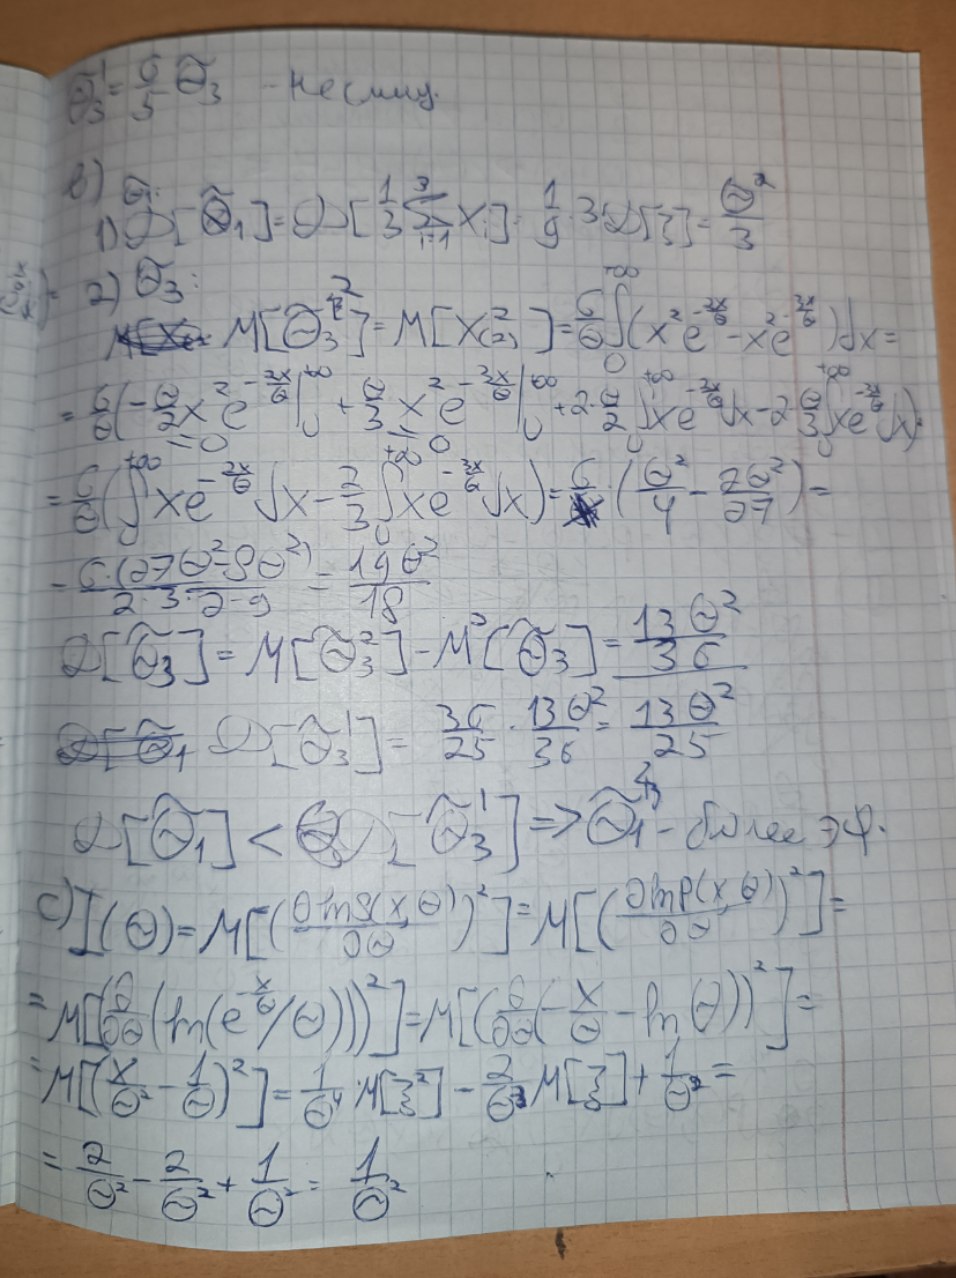 Θ̃₃' = 6/5 Θ̃₃ - несмещ.
в) Θ̃₁:
1) D[Θ̃₁] = D[1/3 Σ_{i=1}^{3} Xᵢ] = 1/9 · 3D[ξ] = Θ²/3
2) Θ̃₃:
M[Θ̃₃²] = M[X₍₂₎²] = 6/Θ ∫₀^{+∞} (x²e^{-2x/Θ} - x²e^{-3x/Θ})dx =
= 6/Θ (-Θ/2 x²e^{-2x/Θ}|₀^{+∞} + Θ/3 x²e^{-3x/Θ}|₀^{+∞} + 2·Θ/2 ∫₀^{+∞} xe^{-2x/Θ}dx - 2·Θ/3 ∫₀^{+∞} xe^{-3x/Θ}dx) =
= 0 = 0
= 6/Θ (∫₀^{+∞} xe^{-2x/Θ}dx - 2/3 ∫₀^{+∞} xe^{-3x/Θ}dx) = 6 · (Θ²/4 - 2Θ²/27) =
= 6·(27Θ²-8Θ²)/(2·3·2·9) = 19Θ²/18
D[Θ̃₃] = M[Θ̃₃²] - M²[Θ̃₃] = 13Θ²/36
D[Θ̃₃'] = 36/25 · 13Θ²/36 = 13Θ²/25
D[Θ̃₁] < D[Θ̃₃'] => Θ̃₁ - более эф.
c) I(Θ) = M[(∂lnp(x,Θ)/∂Θ)²] = M[(∂lnp(x,Θ)/∂Θ)²] =
= M[(∂/∂Θ(ln(e^{-x/Θ}/Θ)))²] = M[(∂/∂Θ(-x/Θ - lnΘ))²] =
= M[(x/Θ² - 1/Θ)²] = 1/Θ⁴ · M[ξ²] - 2/Θ³ M[ξ] + 1/Θ² =
= 2/Θ² - 2/Θ² + 1/Θ² = 1/Θ²